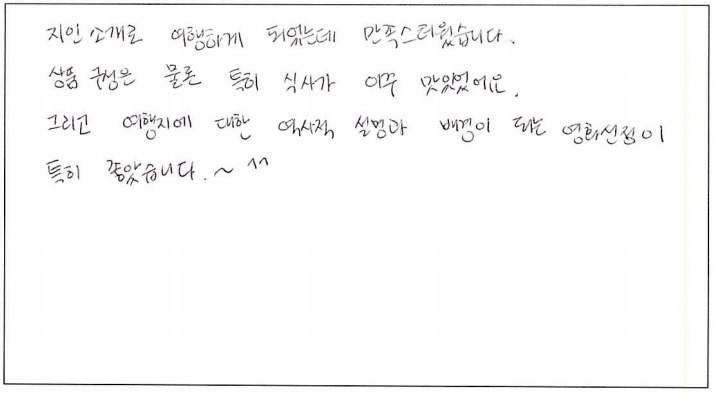 지인 소개로 여행하게 되었는데 만족스러웠습니다.
상품 구성은 물론 특히 식사가 아주 맛있었어요.
그리고 여행지에 대한 역사적 설명과 배경이 되는 영화선정이
특히 좋았습니다.~ ^^